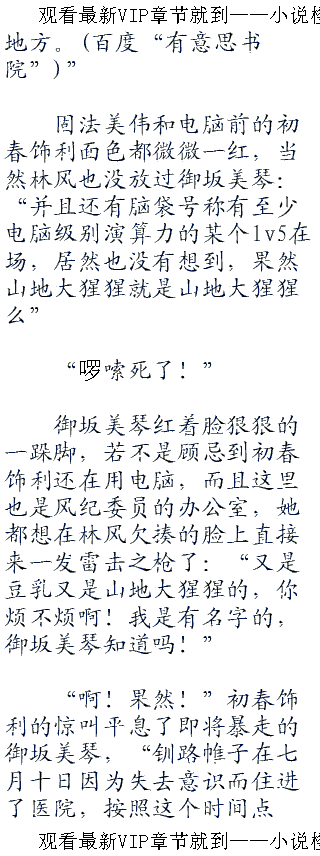 观看最新VIP章节就到——小说楼
地方。(百度“有意思书
院”)”
固法美伟和电脑前的初
春饰利面色都微微一红，当
然林风也没放过御坂美琴：
“并且还有脑袋号称有至少
电脑级别演算力的某个lv5在
场，居然也没有想到，果然
山地大猩猩就是山地大猩猩
么”
“啰嗦死了！”
御坂美琴红着脸狠狠的
一跺脚，若不是顾忌到初春
饰利还在用电脑，而且这里
也是风纪委员的办公室，她
都想在林风欠揍的脸上直接
来一发雷击之枪了：“又是
豆乳又是山地大猩猩的，你
烦不烦啊！我是有名字的，
御坂美琴知道吗！”
“啊！果然！”初春饰
利的惊叫平息了即将暴走的
御坂美琴，“钏路帷子在七
月十日因为失去意识而住进
了医院，按照这个时间点
观看最新VIP章节就到——小说